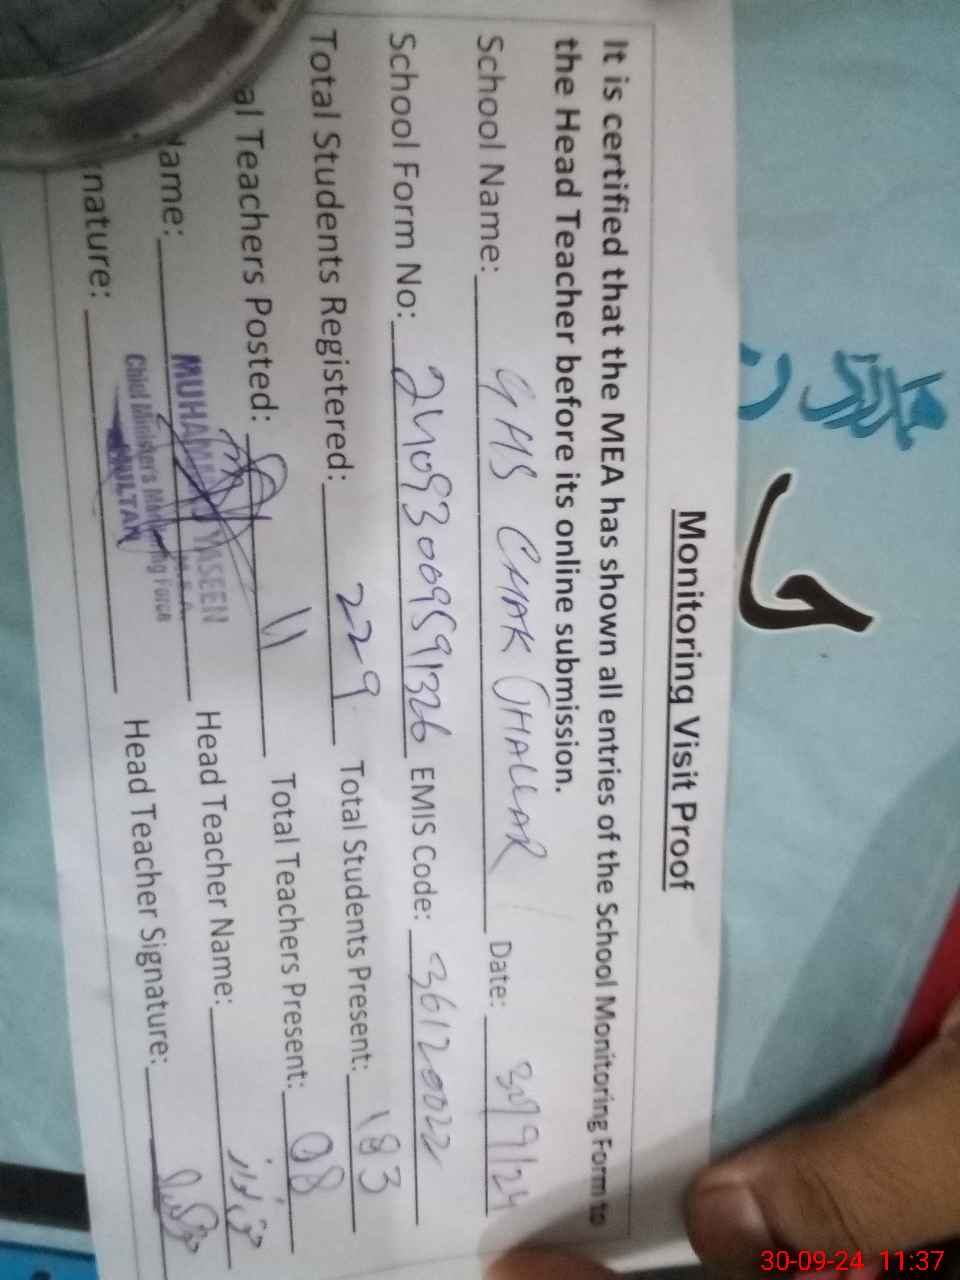 Monitoring Visit Proof
It is certified that the MEA has shown all entries of the School Monitoring Form to
the Head Teacher before its online submission.
School Name: GHS CHAK JHALLAR Date: 30/9/24
School Form No: 24093009591326 EMIS Code: 36120022
Total Students Registered: 229 Total Students Present: 183
al Teachers Posted: 11 Total Teachers Present: 08
Name: MUHAMMAD YASEEN Head Teacher Name:
Chief Minister's Monitoring Force
MULTAN
nature: Head Teacher Signature:
30-09-24 11:37